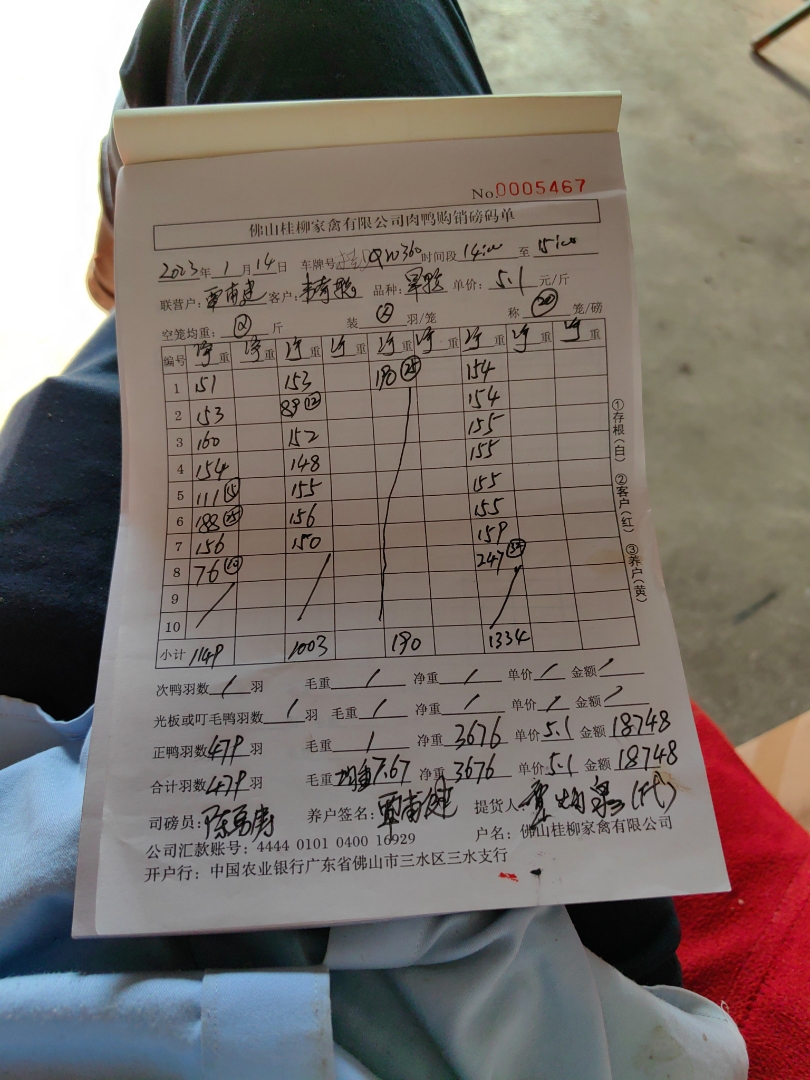 No.0005467
佛山桂柳家禽有限公司肉鸭购销磅码单
2023年1月14日 车牌号 QW360 时间段 14:00 至 15:00
联营户: 覃甫建 客户: 品种: 单价: 5.1 元/斤
空笼均重: 斤 装 羽/笼 称 20 笼/磅
编号 净重 净重 净重 净重 净重 净重 净重 净重 净重
1 151 153 190 25 154
2 153 89 12 154
3 160 152 155
4 154 148 155
5 111 15 155 155
6 188 25 156 155
7 156 150 159
8 76 10 247
9
10
小计 1149 1003 190 1334
次鸭羽数 / 羽 毛重 / 净重 / 单价 / 金额 /
光板或叮毛鸭羽数 / 羽 毛重 / 净重 / 单价 / 金额 /
正鸭羽数 479 羽 毛重 / 净重 3676 单价 5.1 金额 18748
合计羽数 479 羽 毛重 均重7.67 净重 3676 单价 5.1 金额 18748
司磅员: 养户签名: 覃甫建 提货人: (代)
公司汇款账号: 4444 0101 0400 16929 户名: 佛山桂柳家禽有限公司
开户行: 中国农业银行广东省佛山市三水区三水支行
①存根(白) ②客户(红) ③养户(黄)